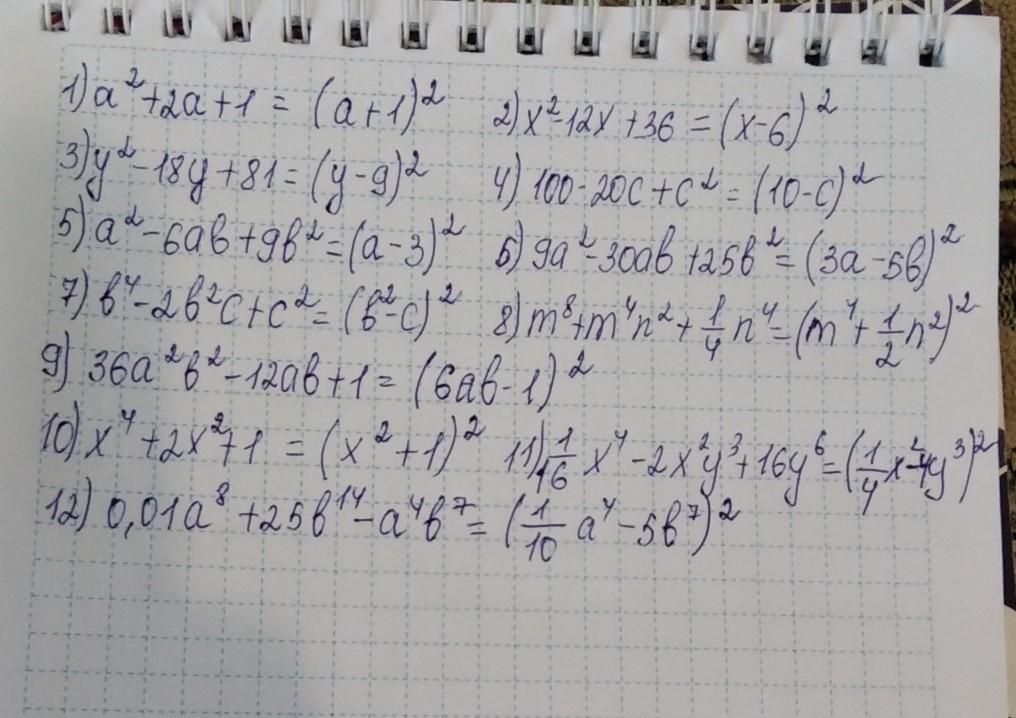 1) a² + 2a + 1 = (a + 1)² 2) x² - 12x + 36 = (x - 6)²
3) y² - 18y + 81 = (y - 9)² 4) 100 - 20c + c² = (10 - c)²
5) a² - 6ab + 9b² = (a - 3)² 6) 9a² - 30ab + 25b² = (3a - 5b)²
7) b⁴ - 2b²c + c² = (b² - c)² 8) m⁸ + m⁴n² + 1/4 n⁴ = (m⁴ + 1/2 n²)²
9) 36a²b² - 12ab + 1 = (6ab - 1)²
10) x⁴ + 2x² + 1 = (x² + 1)² 11) 1/16 x⁴ - 2x²y³ + 16y⁶ = (1/4 x² - 4y³)²
12) 0,01a⁸ + 25b¹⁴ - a⁴b⁷ = (1/10 a⁴ - 5b⁷)²